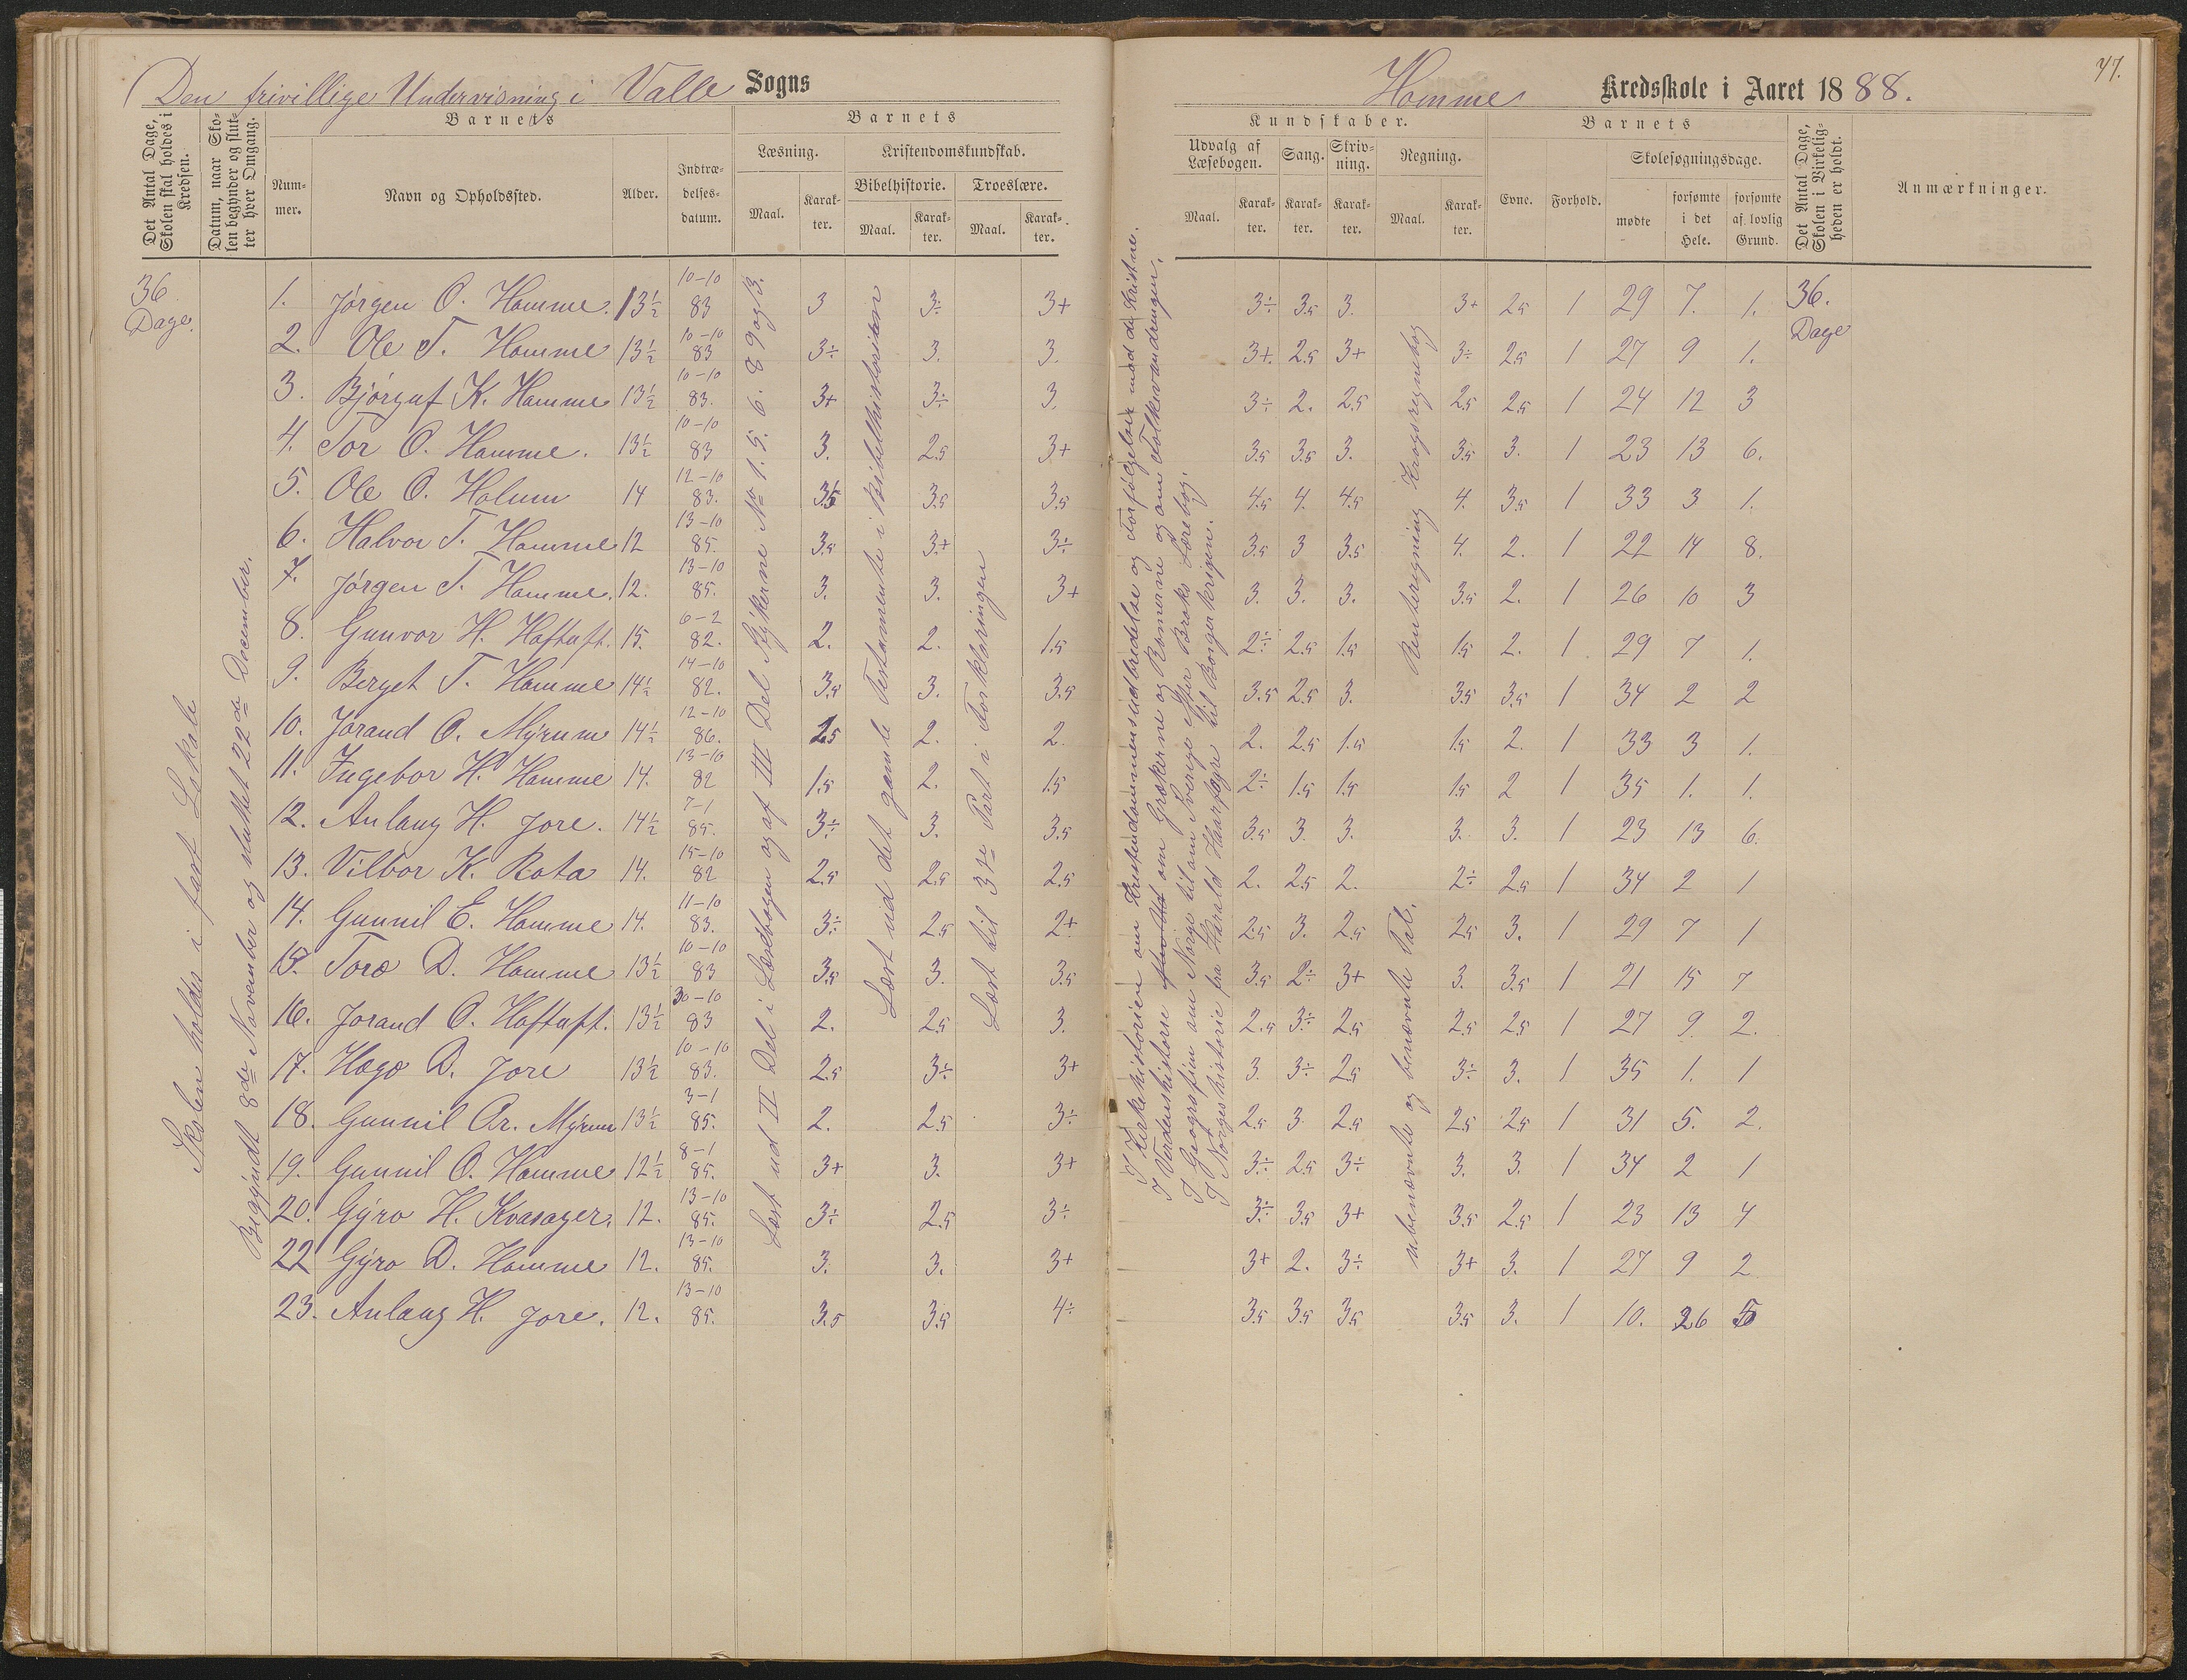 Den frivillige Undervisning i Valle Sogns
Det Antal Dage, Skolen skal holdes i Kredsen.
Datum, naar Skolen begynder og slutter hver Omgang.
Barnets
Nummer.
Navn og Opholdssted.
Alder.
Indtrædelses-datum.
Barnets
Læsning.
Maal.
Karakter.
Kristendomskundskab.
Bibelhistorie.
Maal.
Karakter.
Troeslære.
Maal.
Karakter.
36 Dage.
Skolen holdes i fast Lokale
Begyndt 8de November og sluttet 22de December.
Læst ud II Del i Læsebogen og af III Del Stykkerne No 1. 5. 6. 8 9 og 13.
Læst ud det gamle Testamente i Bibelhistorien
Læst til 3die Part i Forklaringen
1. Jørgen O. Homme. 13½ 10-10 83 3 3÷ 3+
2. Ole T. Homme 13½ 10-10 83 3÷ 3. 3.
3. Bjørguf K. Homme 13½ 10-10 83. 3+ 3÷ 3.
4. Tor O. Homme. 13½ 10-10 83 3. 2.5 3+
5. Ole O. Holum 14 12-10 83. 3.5 3.5 3.5
6. Halvor T. Homme 12 13-10 85. 3.5 3.+ 3÷
7. Jørgen T. Homme. 12. 13-10 85. 3. 3. 3+
8. Gunvor H. Hoftuft. 15. 6-2 82. 2. 2. 1.5
9. Berget T. Homme 14½ 14-10 82. 3.5 3. 3.5
10. Jorand O. Myrum 14½ 12-10 86. 2.5 2. 2.
11. Ingebor H. Homme 14. 13-10 82 1.5 2. 1.5
12. Anlaug H. Jore. 14½ 7-1 85. 3÷ 3. 3.5
13. Vilbor K. Rota 14. 15-10 82 2.5 2.5 2.5
14. Gunnil E. Homme 14. 11-10 83. 3÷ 2.5 2+
15. Toro D. Homme 13½ 10-10 83 3.5 3. 3.5
16. Jorand O. Hoftuft. 13½ 30-10 83 2. 2.5 3.
17. Hægo D. Jore 13½ 10-10 83. 2.5 3÷ 3+
18. Gunnil Or. Myrum 13½ 3-1 85. 2. 2.5 3÷
19. Gunnil O. Homme 12½ 8-1 85. 3+ 3. 3+
20. Gyro H. Kvasager. 12. 13-10 85. 3÷ 2.5 3÷
22 Gyro D. Homme 12. 13-10 85. 3. 3. 3+
23. Anlaug H. Jore. 12. 13-10 85. 3.5 3.5 4÷
77.
Homme Kredsskole i Aaret 1888.
Kundskaber.
Udvalg af Læsebogen.
Maal.
Karakter.
Sang.
Karakter.
Skrivning.
Karakter.
Regning.
Maal.
Karakter.
Barnets
Evne.
Forhold.
Skolesøgningsdage.
mødte
forsømte i det Hele.
forsømte af lovlig Grund.
Det Antal Dage, Skolen i Virkeligheden er holdt.
Anmærkninger.
I Kirkehistorien om Kristendommens udbredelse og Forfølgelser mod de Kristne.
I Verdenshistorie om Grækerne og Romerne og om Folkevandringen.
I Geografien om Norge til om Sverige efter Broks Lærebog.
I Norgeshistorie fra Harald Haarfagre til Borgerkrigen.
Renteregning Krogsregnebog
ubenævnte og benævnte Tal.
3÷ 3.5 3. 3+ 2.5 1 29 7. 1. 36. Dage
3+. 2.5 3+ 3÷ 2.5 1 27 9 1.
3÷ 2. 2.5 2.5 2.5 1 24 12 3
3.5 3.5 3. 3.5 3. 1 23 13 6.
4.5 4. 4.5 4. 3.5 1 33 3 1.
3.5 3 3.5 4. 2. 1 22 14 8.
3. 3. 3. 3.5 2. 1 26 10 3
2÷ 2.5 1.5 1.5 2. 1 29 7 1.
3.5 2.5 3. 3.5 3.5 1 34 2 2
2. 2.5 1.5 1.5 2. 1 33 3 1.
2÷ 1.5 1.5 1.5 2 1 35 1. 1.
3.5 3. 3. 3. 3. 1 23 13 6.
2. 2.5 2. 2÷ 2.5 1 34 2 1
2.5 3. 2.5 2.5 3. 1 29 7 1
3.5 2÷ 3+ 3. 3.5 1 21 15 7
2.5 3÷ 2.5 2.5 2.5 1 27 9. 2.
3. 3÷ 2.5 3÷ 3. 1 35 1. 1
2.5 3. 2.5 2.5 2.5 1 31 5. 2.
3÷ 2.5 3÷ 3. 3. 1 34 2 1
3÷ 3.5 3+ 3.5 2.5 1 23 13 4
3+ 2. 3÷ 3+ 3. 1 27 9 2
3.5 3.5 3.5 3.5 3. 1 10. 26 5